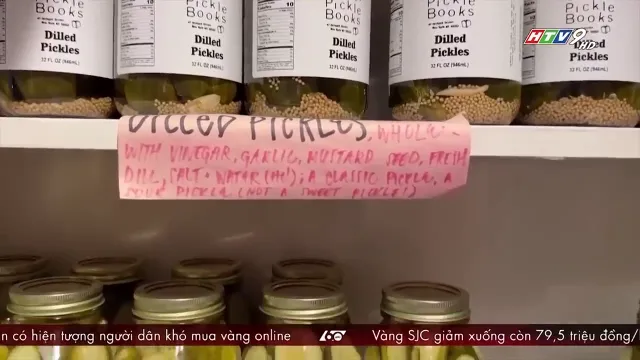 Pickle
Books
Dilled
Pickles
32 FL OZ (946mL)
Pickle
Books
Dilled
Pickles
32 FL OZ (946mL)
Pickle
Books
Dilled
Pickles
32 FL OZ (946mL)
Pickle
Books
Dilled
Pickles
32 FL OZ (946mL)
Pickle
Books
Dilled
Pickles
32 FL OZ (946mL)
HTV9 HD
DILLED PICKLES, WHOLE -
WITH VINEGAR, GARLIC, MUSTARD SEED, FRESH
DILL, SALT + WATER; A CLASSIC PICKLE, A
SOUR PICKLE (NOT A SWEET PICKLE!)
n có hiện tượng người dân khó mua vàng online
60
Vàng SJC giảm xuống còn 79,5 triệu đồng/